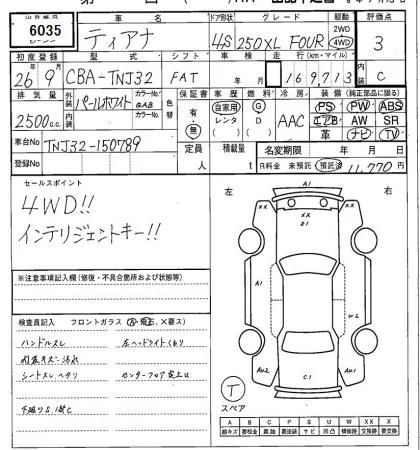 車名 ドア形状 グレード 駆動 評価点
6035 ティアナ 4S 250XL FOUR 2WD 4WD 3
初度登録 型式 シフト 車検 走行(km・マイル) 内装
26年9月 CBA-TNJ32 FAT 年 月 169,713 C
排気量 外装 カラーNo. 色替 保証書 車歴 燃料 冷房 装備(純正部品に限る)
2500c.c. パールホワイト QAB 有・無 自家用 レンタ G D AAC PS PW ABS
内装 カラーNo. エアB AW SR
革 ナビ TV
車台No TNJ32-150789 定員 人 積載量 t 名変期限 年 月 日
登録No R料金 未預託 預託済 11,770円
セールスポイント
4WD!!
インテリジェントキー!!
左 右
A1
XX XX
A1
C1
※注意事項記入欄(修復・不具合箇所および状態等)
検査員記入 フロントガラス(A・飛石、×要ス)
ハンドルスレ 左ヘッドライトくもり
内装キズ・汚れ
シートスレ、ヘタリ
下廻りS
T
スペア
A B C P S U W X XX
線キズ 要板金 腐蝕 要塗装 サビ 凹凸 補修跡 要交換 交換跡